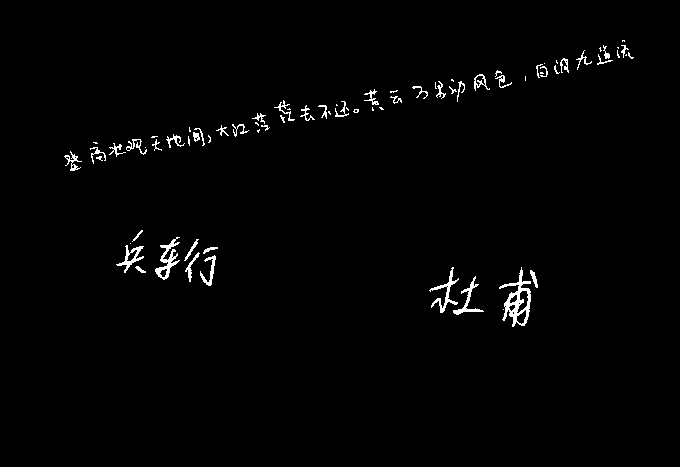 登高壮观天地间,大江茫茫去不还。黄云万里动风色,白波九道流
兵车行
杜甫